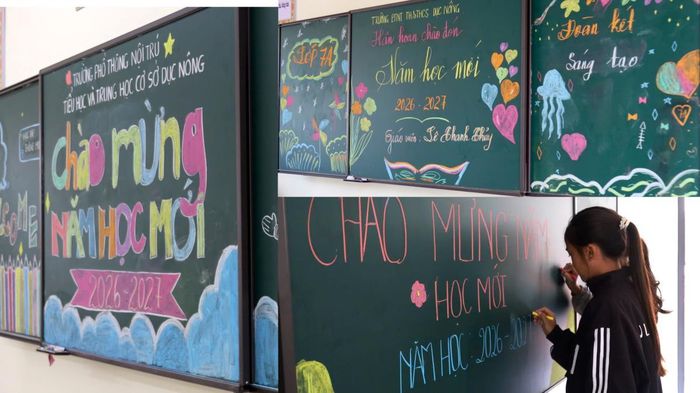 TRƯỜNG PHỔ THÔNG NỘI TRÚ
TIỂU HỌC VÀ TRUNG HỌC CƠ SỞ DỤC NÔNG
Chào mừng
NĂM HỌC MỚI
2026-2027
COME
LỚP 7A
TRƯỜNG PTNT TH&THCS DỤC NÔNG
Hân hoan chào đón
Năm học mới
2026-2027
Giáo viên: Lê Thanh Thủy
Đoàn kết
Sáng tạo
CHÀO MỪNG NĂM
HỌC MỚI
NĂM HỌC: 2026-202